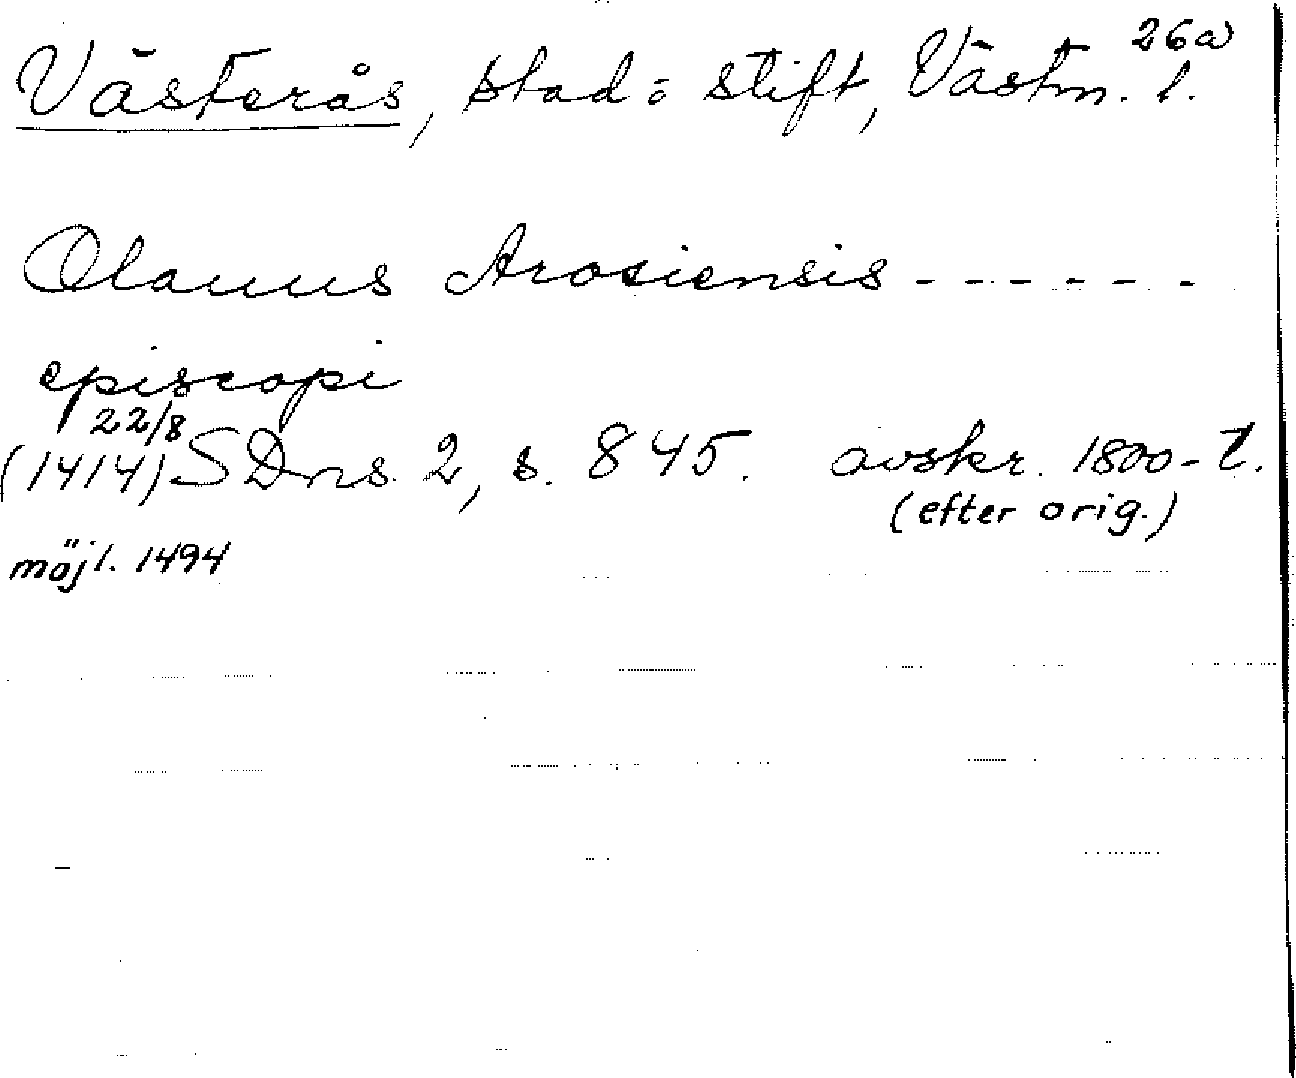 26a
Västerås, stad o stift, Västm. l.
Olauus Arosiensis - - - - - -
episcopi
22/8
(1414) SDns. 2, s. 845. avskr. 1800-t.
(efter orig.)
möjl. 1494